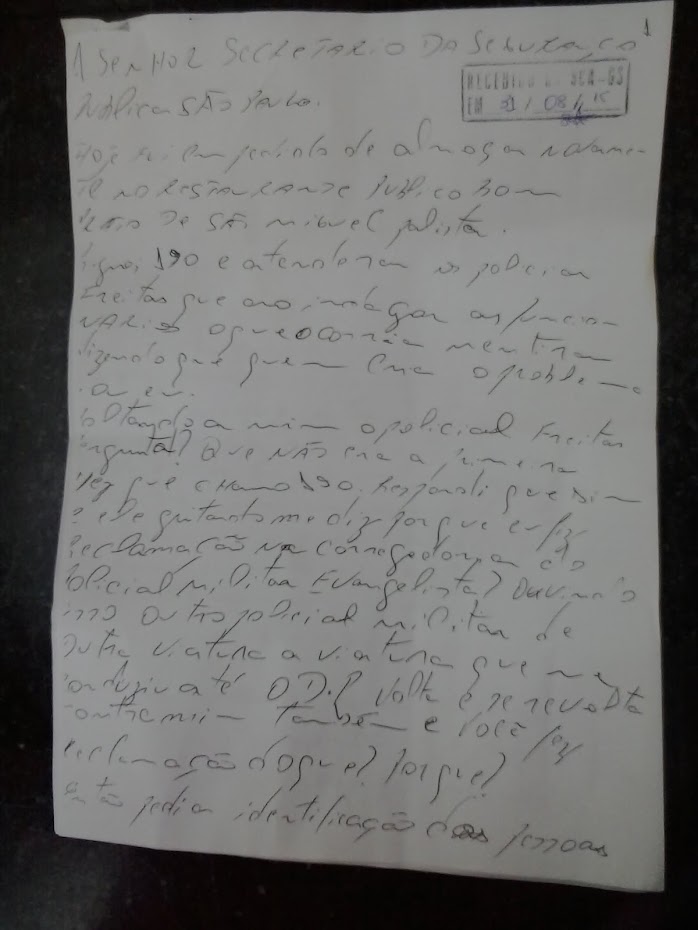 1
A SENHOR SECRETARIO DA SEGURAÇA
RECEBIDO SCR-GS
EM 31/08/15
PÚBLICA SÃO PAULO.
Hoje fui impedido de almoçar novamen
te NO RESTAURANTE PUBLICO BOM
PRATO DE SÃO MIGUEL paulista.
liguei 190 e atenderam os policiai
Freitas que ao indagar as funcio
NARIAS o que ocorria mentiram
dizendo que quem cria o problema
sou eu.
voltando a mim o policial Freitas
pergunta? QUE NÃO era a primeira
vez que chamo 190. Respondi que sim
e ele gritando me diz porque eu fiz
Reclamação na corregedoria do
Policial militar Evangelista? Ouvindo
isso outro policial militar de
outra viatura a viatura que me
conduziu até O D.P volta e se revolta
contra mim também e você fez
reclamação do que? Por que?
então pedi a identificação das pessoas